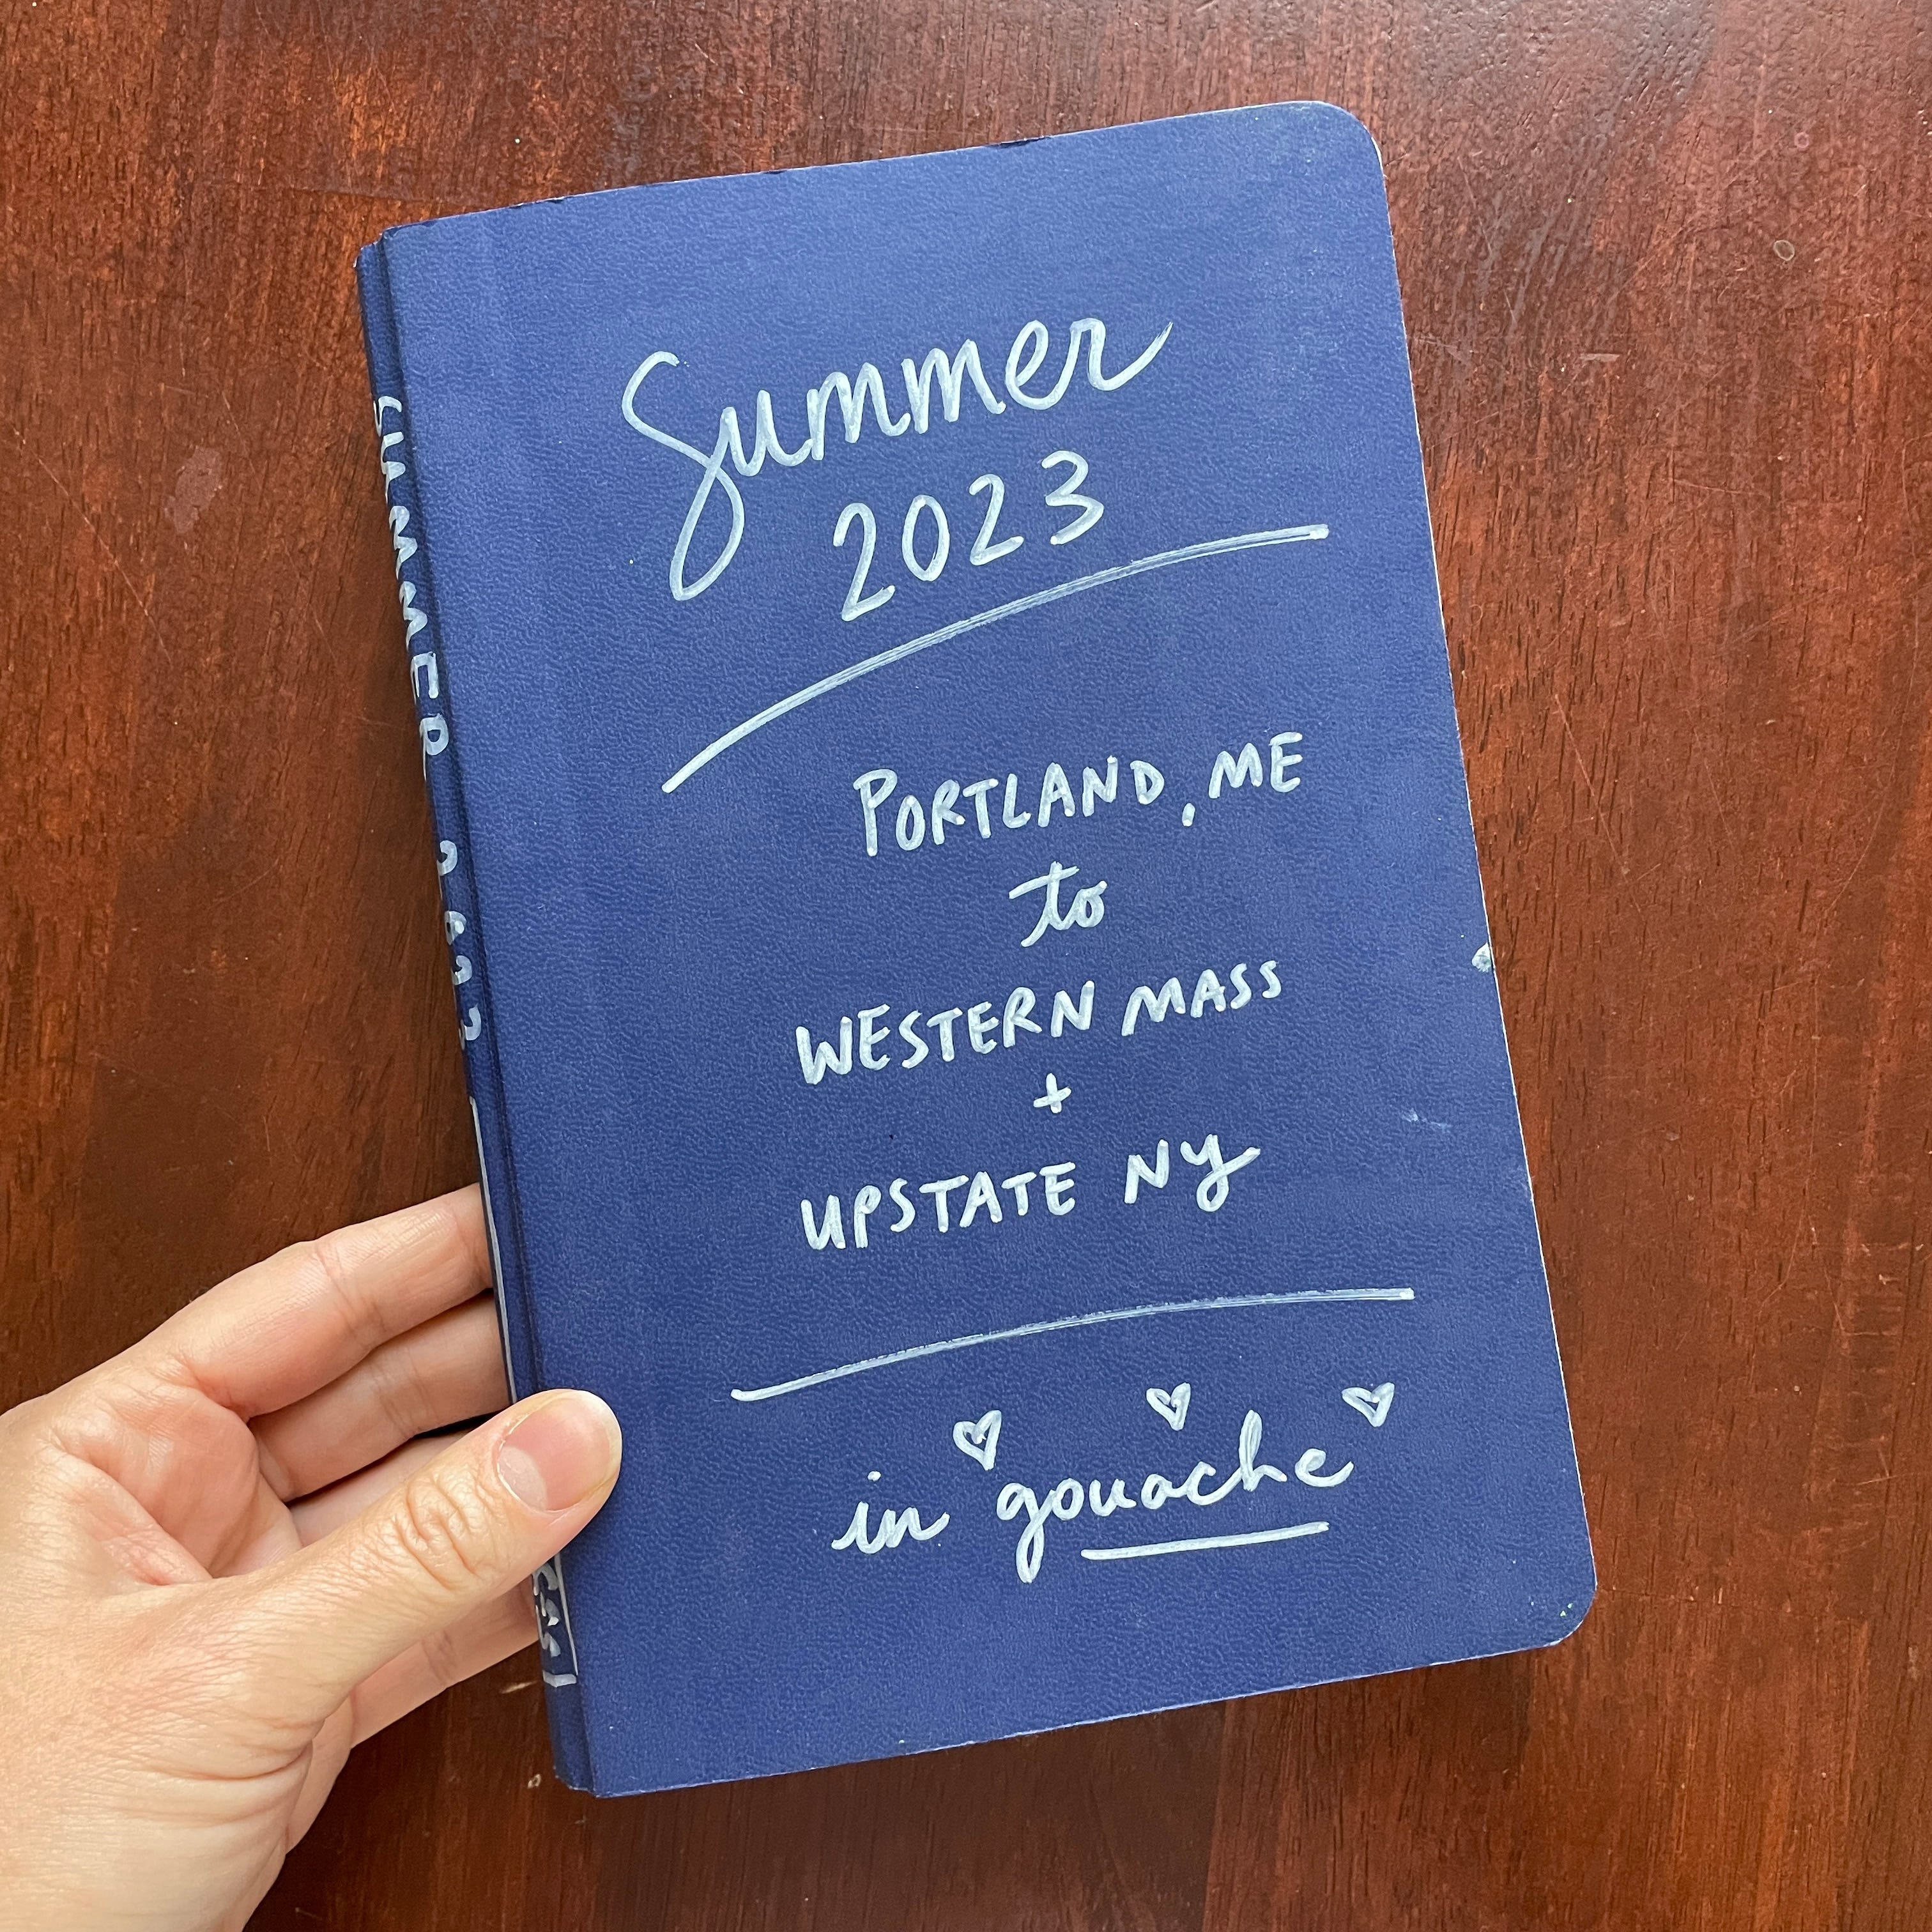 Summer
2023
PORTLAND, ME
to
WESTERN MASS
+
UPSTATE NY
in gouache
SUMMER 2023